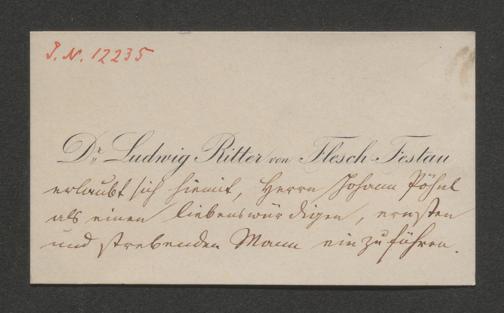 J.N. 12235
Dr. Ludwig Ritter von Flesch-Festau
erlaubt sich hiemit, Herrn Johann
als einen liebenswürdigen, ernsten
und strebenden Mann einzuführen.